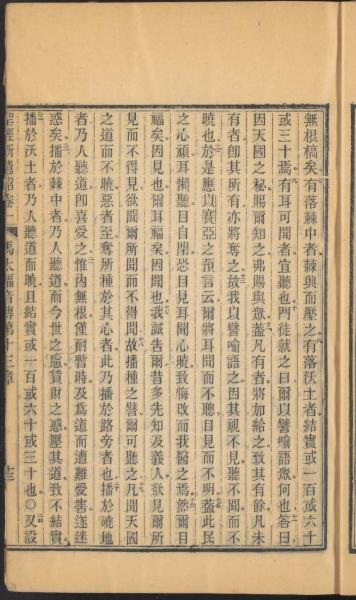 無根槁矣有落棘中者棘興而壓之有落沃土者結實或一百或六十
或三十焉有耳可聞者宜聽也門徒就之曰爾以譬喻語眾何也答曰
因天國之秘賜爾知之弗賜與眾蓋凡有者將加給之致其有餘凡未
有者即其所有亦將奪之故我以譬喻語之因其視不見聽不聞而不
曉也於是應以賽亞之預言云爾將耳聞而不聰目見而不明蓋此民
之心頑耳懶聽目自閉恐目見耳聞心曉致悔改而我醫之焉然爾目
福矣因見也爾耳福矣因聞也我誠告爾昔多先知及義人欲見爾所
見而不得見欲聞爾所聞而不得聞故播種之譬爾可聽之凡聞天國
之道而不曉惡者至奪所種於其心者此乃播於路旁者也播於磽地
者乃人聽道即喜愛之惟內無根僅耐暫時及爲道而遭難受害遂迷
惑矣播於棘中者乃人聽道而今世之慮貨財之惑壓其道致不結實
播於沃土者乃人聽道而曉且結實或一百或六十或三十也〇又設
聖經新遺詔卷一 馬太福音傳第十三章 十三